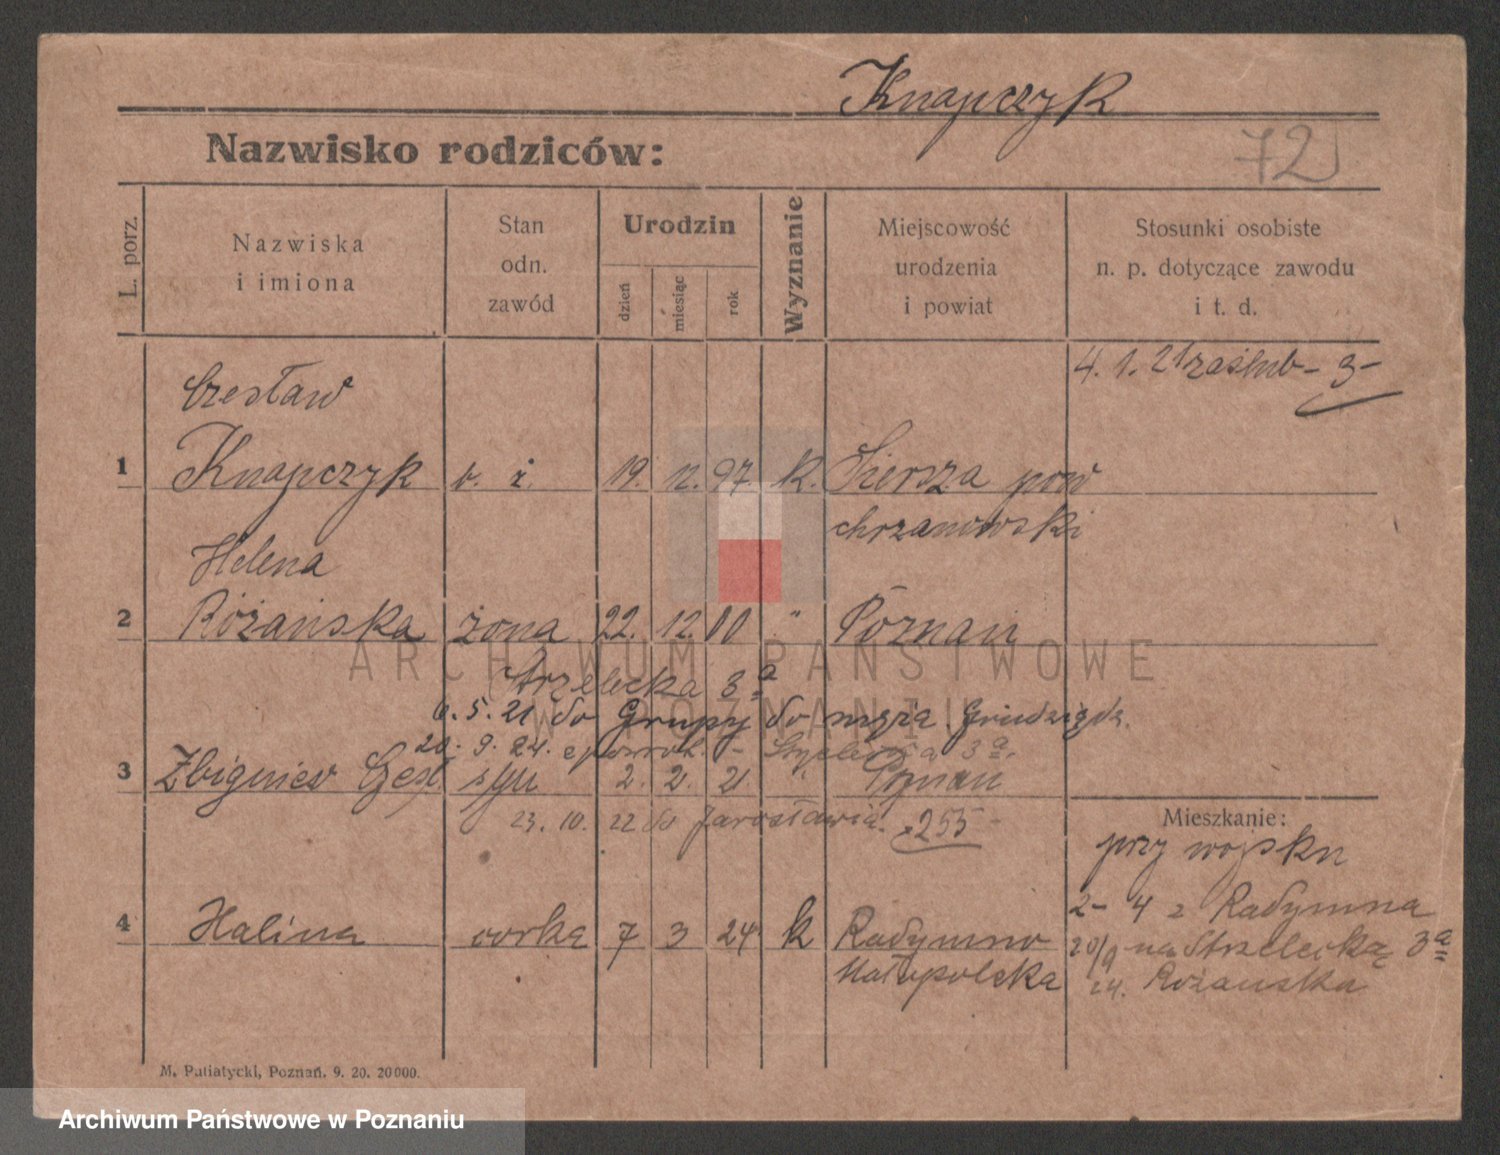 Knapczyk
Nazwisko rodziców:
72
L. porz.
Nazwiska
i imiona
Stan
odn.
zawód
Urodzin
dzień
miesiąc
rok
Wyznanie
Miejscowość
urodzenia
i powiat
Stosunki osobiste
n. p. dotyczące zawodu
i t. d.
4. 1. 21 zaślub – 3 –
Czesław
1 Knapczyk b. ż. 19. 12. 97. k. Siersza pow
chrzanowski
Helena
2 Różańska żona 22. 12. 00 " Poznań
Strzelecka 3a
6. 5. 21 do Grupy do męża. Grudziądz.
20. 9. 24. z powrot. – Strzelecka 3a.
3 Zbigniew syn 2. 2. 21. " Poznań
23. 10. 22 do Jarosławia. 255
Mieszkanie:
przy wojsku
2 – 4 z Radymna
4 Halina córka 7 3 24 k Radymno
20/9 na Strzelecką 3a
Małopolska
24. Różańska
M. Putiatycki, Poznań. 9. 20. 20000.
ARCHIWUM PAŃSTWOWE
W POZNANIU
Archiwum Państwowe w Poznaniu